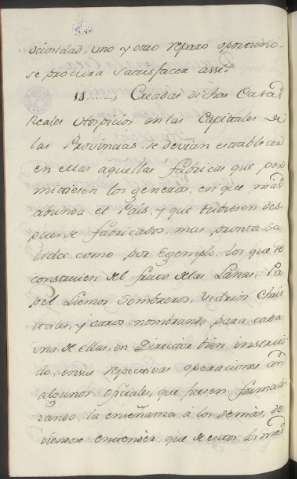 ociosidad, uno y otro reparo oportuno
se procura satisfacer assi.
11. Creadas dichas Casas
Reales Hospicios en las Capitales de
las Provincias se devian establecer
en ellas aquellas fabricas que per
mitiesen los generos, en que mas
abunda el Pais, y que tubiesen des
pues de fabricados mas pronta Sa
lida: como por Egemplo, los que se
construien del fruto de las Lanas, Pa
pel Lienzos Sombreros, Vidrios Chris
tales, y otros nombrando para cada
una de ellas, un Director bien instrui
do en sus respectivas operaciones con
algunos oficiales, que fuesen formali
zando la enseñanza a los demas, de
viendo entender que de estos los mas